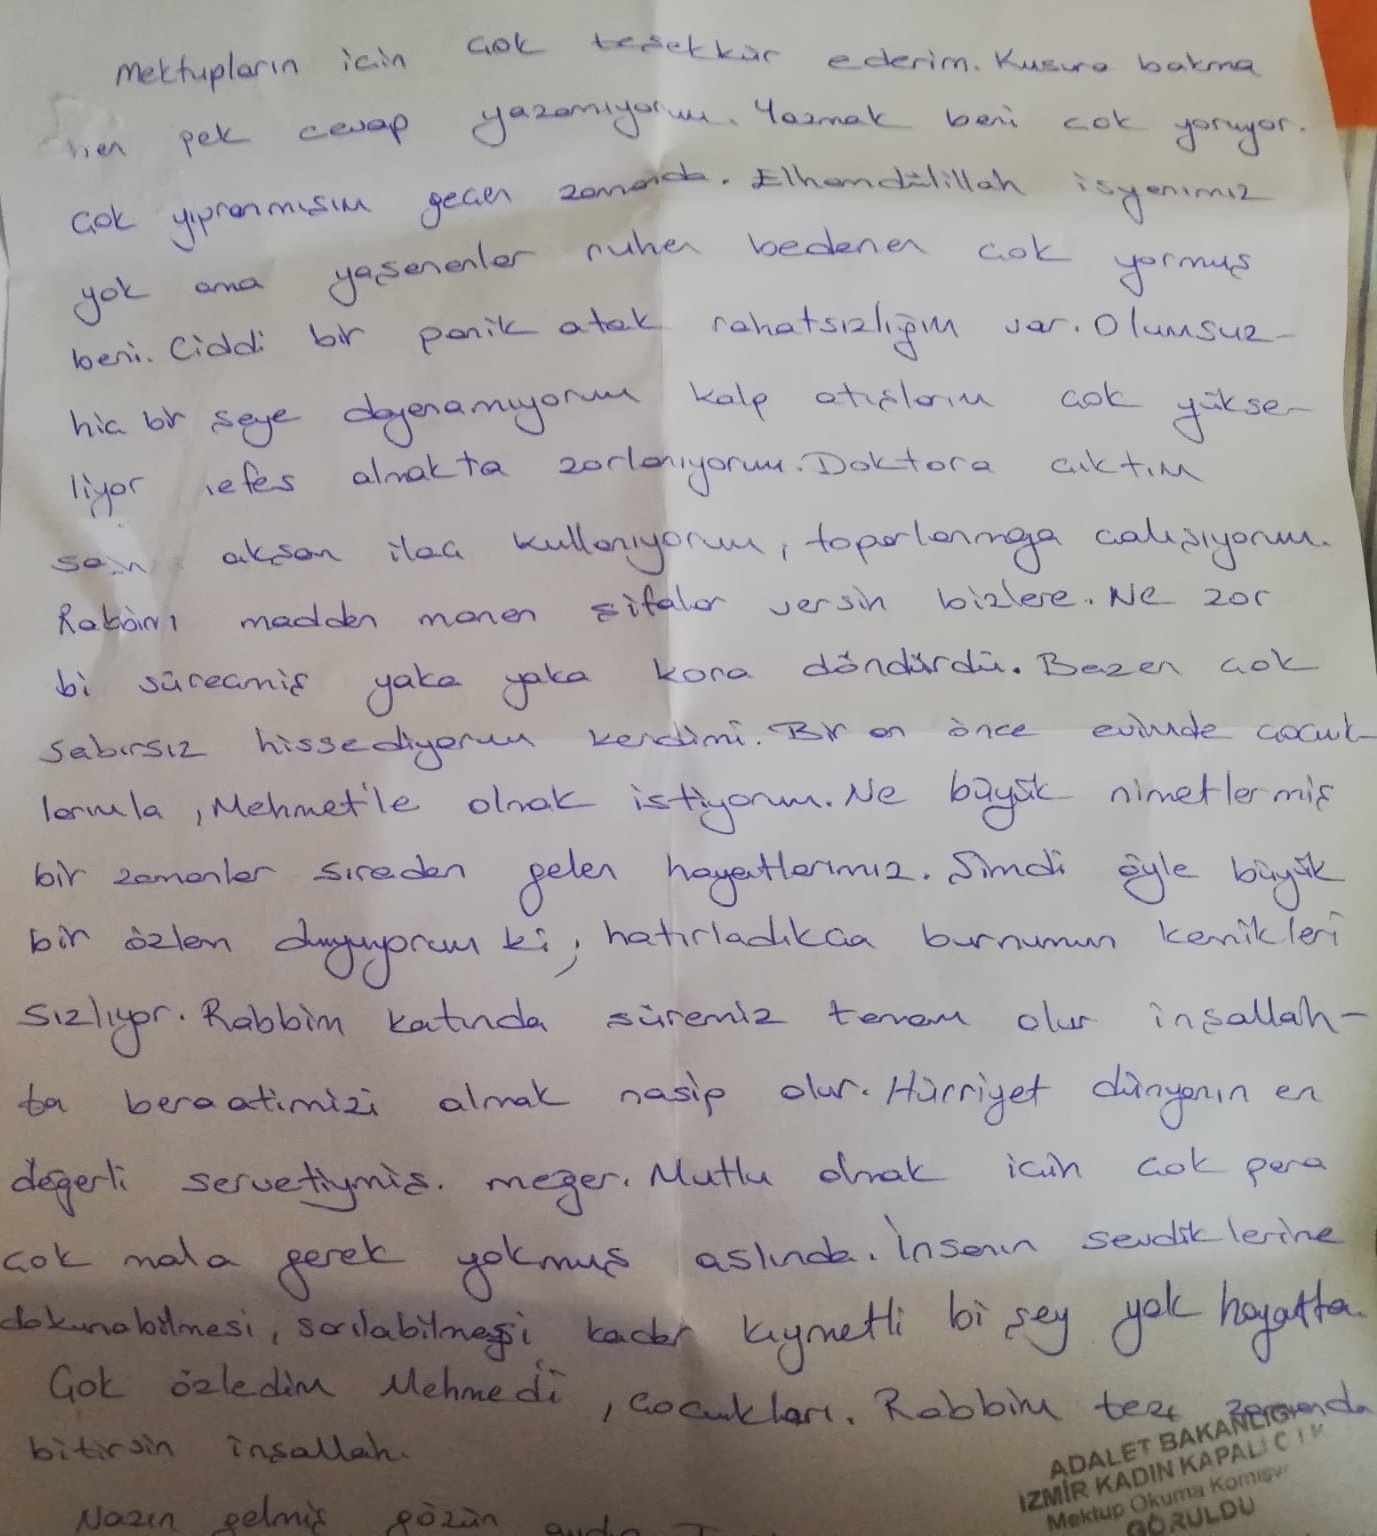 Mektupların için çok teşekkür ederim. Kusura bakma
ben pek cevap yazamıyorum. Yazmak beni çok yoruyor.
Çok yıpranmışım geçen zamanda. Elhamdülillah isyanımız
yok ama yaşananlar ruhen bedenen çok yormuş
beni. Ciddi bir panik atak rahatsızlığım var. Olumsuz
hiç bir şeye dayanamıyorum kalp atışlarım çok yükse-
liyor nefes almakta zorlanıyorum. Doktora çıktım
akşam ilaç kullanıyorum, toparlanmaga çalışıyorum.
Rabbim madden manen şifalar versin bizlere. Ne zor
bi süreçmiş yaka yaka kora döndürdü. Bazen çok
sabırsız hissediyorum kendimi. Bir an önce evimde çocuk-
larımla, Mehmet'le olmak istiyorum. Ne büyük nimetlermiş
bir zamanlar sıradan gelen hayatlarımız. Şimdi öyle büyük
bir özlem duyuyorum ki, hatırladıkça burnumun kemikleri
sızlıyor. Rabbim katında süremiz tamam olur inşallah-
ta beraatimizi almak nasip olur. Hürriyet dünyanın en
değerli servetiymiş. meğer. Mutlu olmak için çok para
çok mala gerek yokmuş aslında. İnsanın sevdiklerine
dokunabilmesi, sarılabilmesi kadar kıymetli bi şey yok hayatta.
Çok özledim Mehmedi, çocukları. Rabbim tez zamanda
bitirsin inşallah.
Nazın gelmiş gözün aydın
ADALET BAKANLIĞI
İZMİR KADIN KAPALI C.İ.K
Mektup Okuma Komisyo
GÖRÜLDÜ